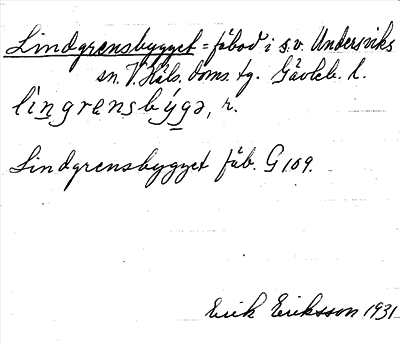 Lindgrensbygget = fäbod i s.v. Undersviks
sn. V. Häls. doms. tg. Gävleb. l.
língrensbýgə, r.
Lindgrensbygget fäb. G 109.
Erik Eriksson 1931